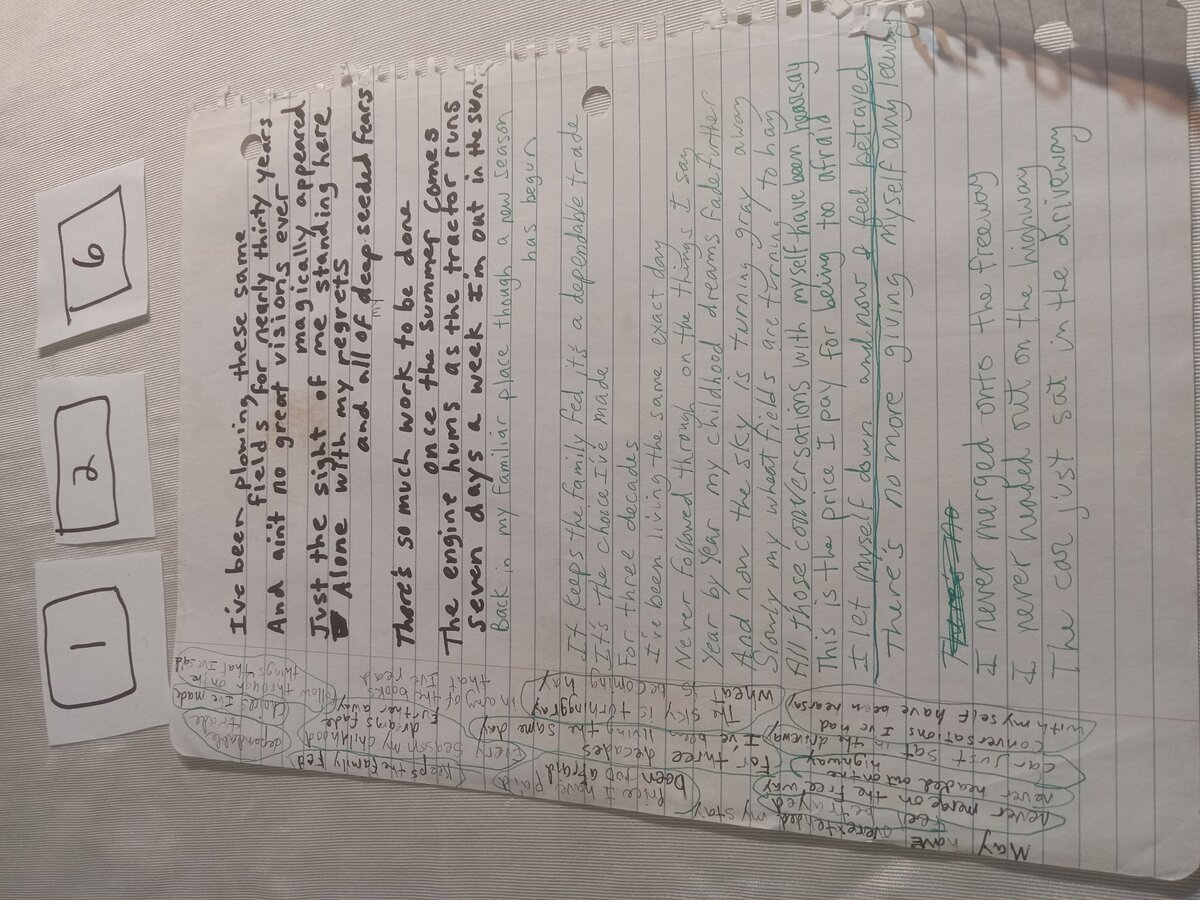 1
2
6
I've been plowing these same
fields for nearly thirty years
And aint no great visions ever
magically appeared
Just the sight of me standing here
Alone with my regrets
and all of my deep seeded fears
There's so much work to be done
once the summer comes
The engine hums as the tractor runs
Seven days a week I'm out in the sun
Back in my familiar place though a new season
has begun
It keeps the family fed it's a dependable trade
It's the choice I've made
For three decades
I've been living the same exact day
Never followed through on the things I say
Year by year my childhood dreams fade further
And now the sky is turning gray away
Slowly my wheat fields are turning to hay
All those conversations with myself have been hearsay
This is the price I pay for being too afraid
I let myself down and now I feel betrayed
There's no more giving myself any leeway
There's no
I never merged onto the freeway
I never headed out on the highway
The car just sat in the driveway
follow through on the
things that I've said
choices I've made
dependable
trade
in any of the books
that I've read
Every season my childhood
dreams fade
further away
keeps the family fed
The sky is turning gray
wheat is becoming hay
For three decades
I've been living the same day
price I have paid
been too afraid
conversations I've had
with myself have been hearsay
car just sat in the driveway
never headed out on the
highway
never merge on the freeway
feel betrayed
May have overextended my stay